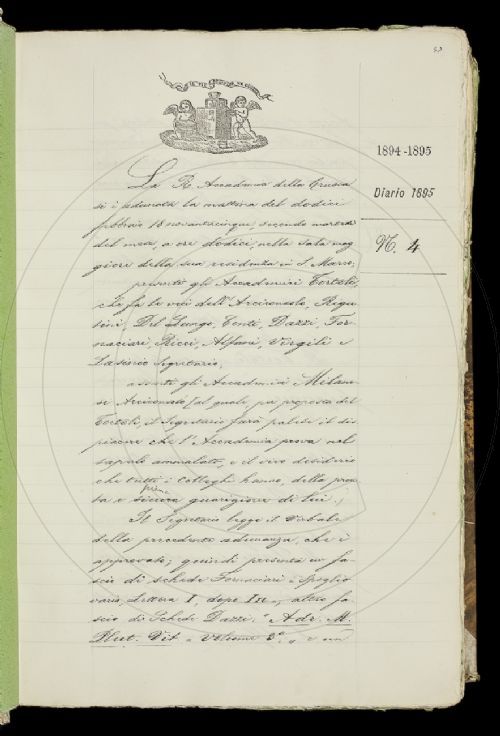 1894-1895
Diario 1895
N. 4
La R. Accademia della Crusca
si è adunata la mattina del dodici
febbraio 18 novantacinque, secondo martedì
del mese, a ore dodici, nella sala mag
giore della sua residenza in S. Marco,
presenti gli Accademici Tortoli,
che fa le veci dell'Arciconsolo, Rigu
tini, Del Lungo, Conti, Dazzi, For
naciari, Ricci, Alfani, Virgili e
Segretario,
assenti gli Accademici Milane
si Arciconsolo (al quale, per proposta del
Tortoli, il Segretario farà palese il dis
piacere che l'Accademia prova nel
saperlo ammalato, e il vivo desiderio
che tutti i Colleghi hanno, della pron
ta e sincera guarigione di Lui.)
Il Segretario legge il Verbale
della precedente adunanza, che è
approvato; quindi presenta un fa-
scio di schede Fornaciari - Spoglio
vario, Lettera I, dopo In -, altro fa
scio di Schede Dazzi, "Adr. M.
Plut. Vit. - Volume 3°. „ e un